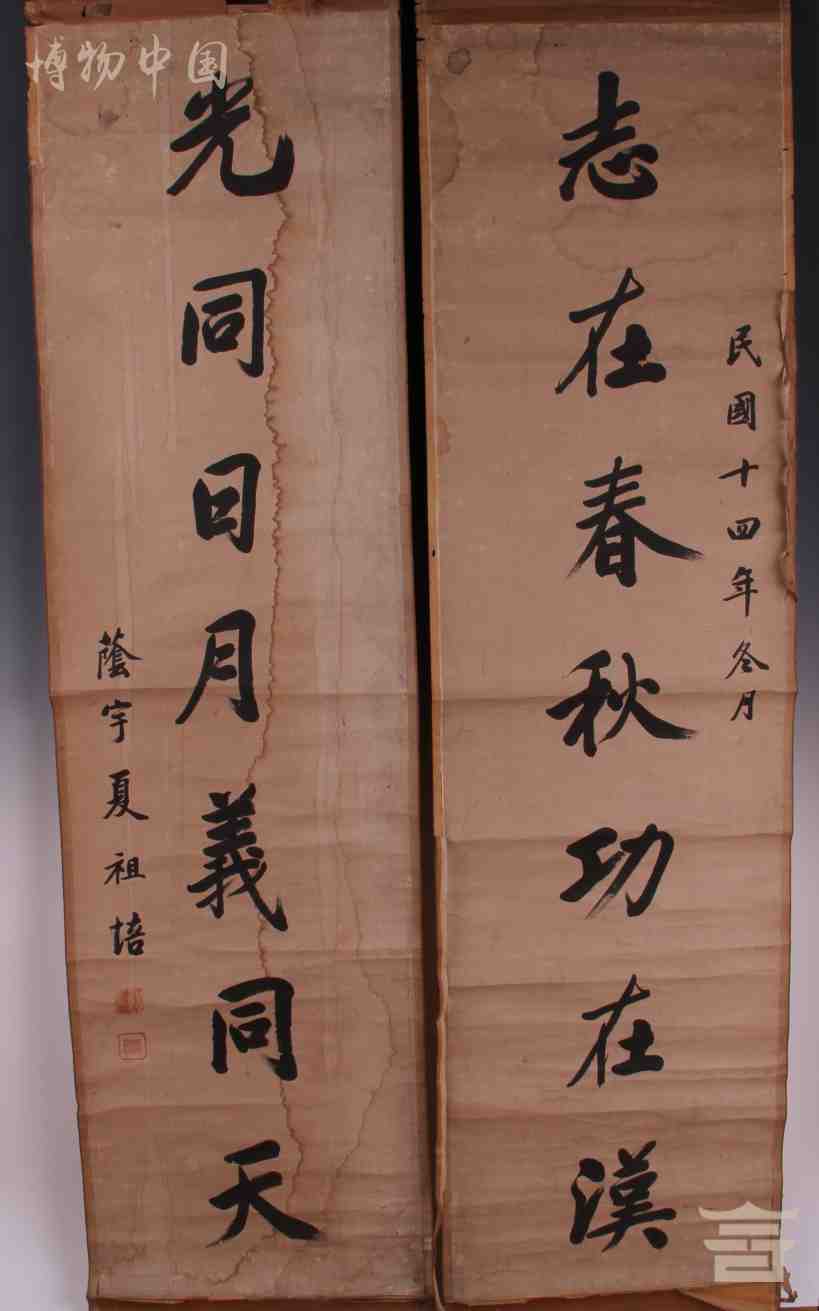 博物中国
民國十四年冬月
志在春秋功在漢
光同日月義同天
蔭宇夏祖培